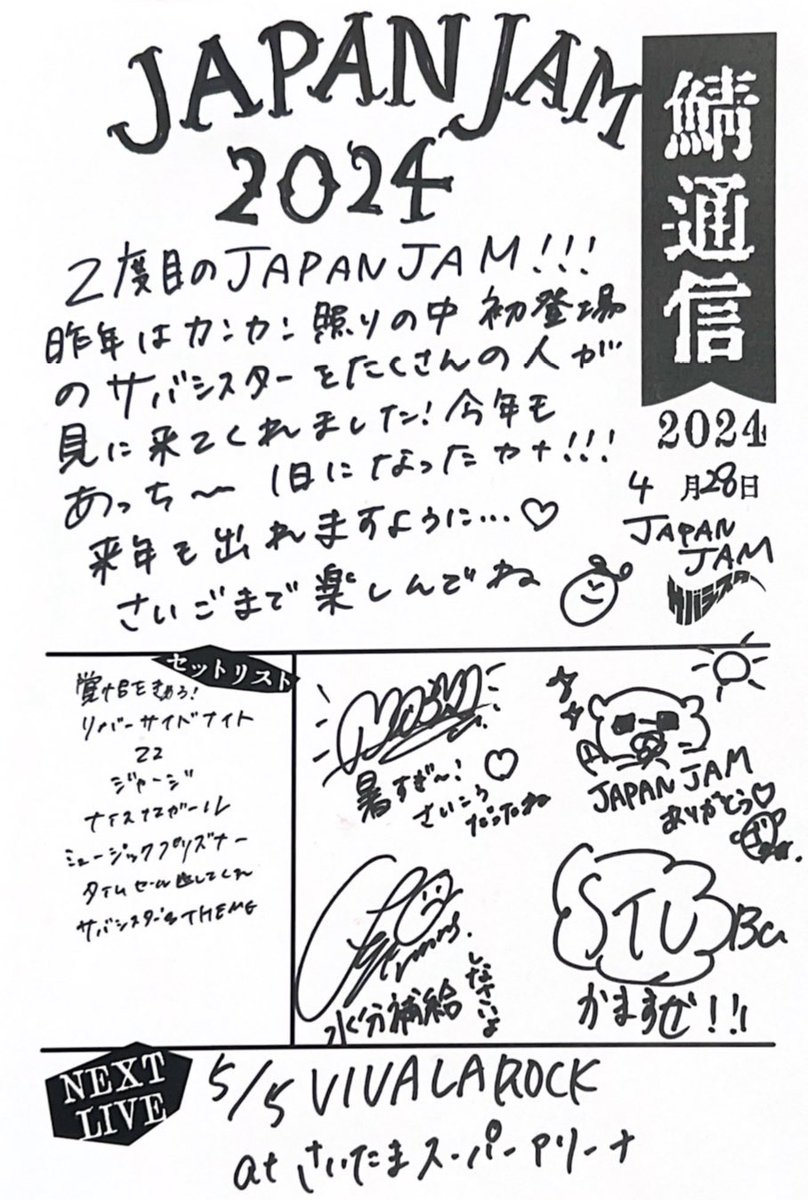 JAPAN JAM
2024
鯖通信
2024
4月28日
JAPAN
JAM
サバシスター
2度目のJAPAN JAM!!!
昨年はカンカン照りの中 初登場
のサバシスターをたくさんの人が
見に来てくれました!今年も
あっち〜 1日になったカナ!!!
来年も出れますように…♡
さいごまで楽しんでね
セットリスト
覚悟をきめろ!
リバーサイドナイト
22
ジャージ
ナイスなガール
ミュージックプリズナー
タイムセール逃してくれ
サバシスター's THEME
暑すぎ〜!♡
さいこう
だったね
JAPAN JAM
ありがとう♡
水分補給
しなさいよ
STU
Ba
かますぜ!!!
NEXT
LIVE
5/5 VIVA LA ROCK
at さいたまスーパーアリーナ